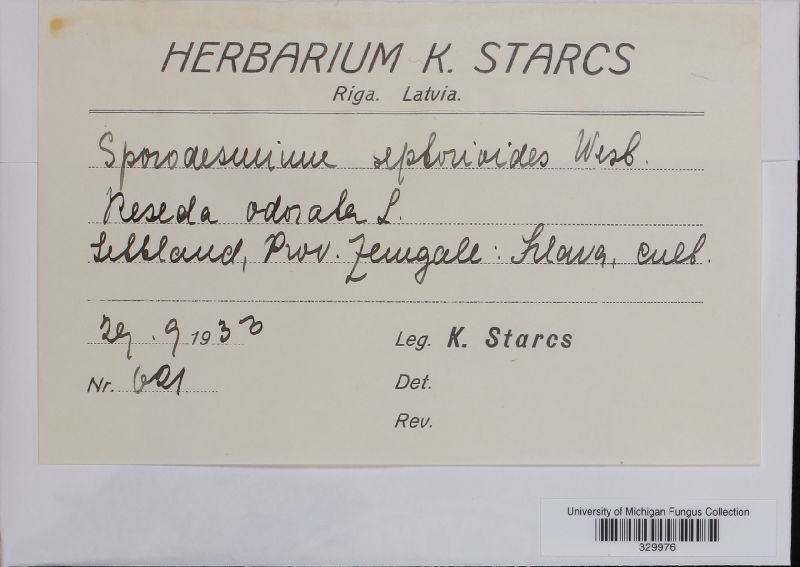 HERBARIUM K. STARCS
Riga. Latvia.
Sporodesmium septorioides West.
Reseda odorata L.
Lettland, Prov. Zemgale: Sclava, cult.
29. 9 1933
Leg. K. Starcs
Nr. 621
Det.
Rev.
University of Michigan Fungus Collection
329976